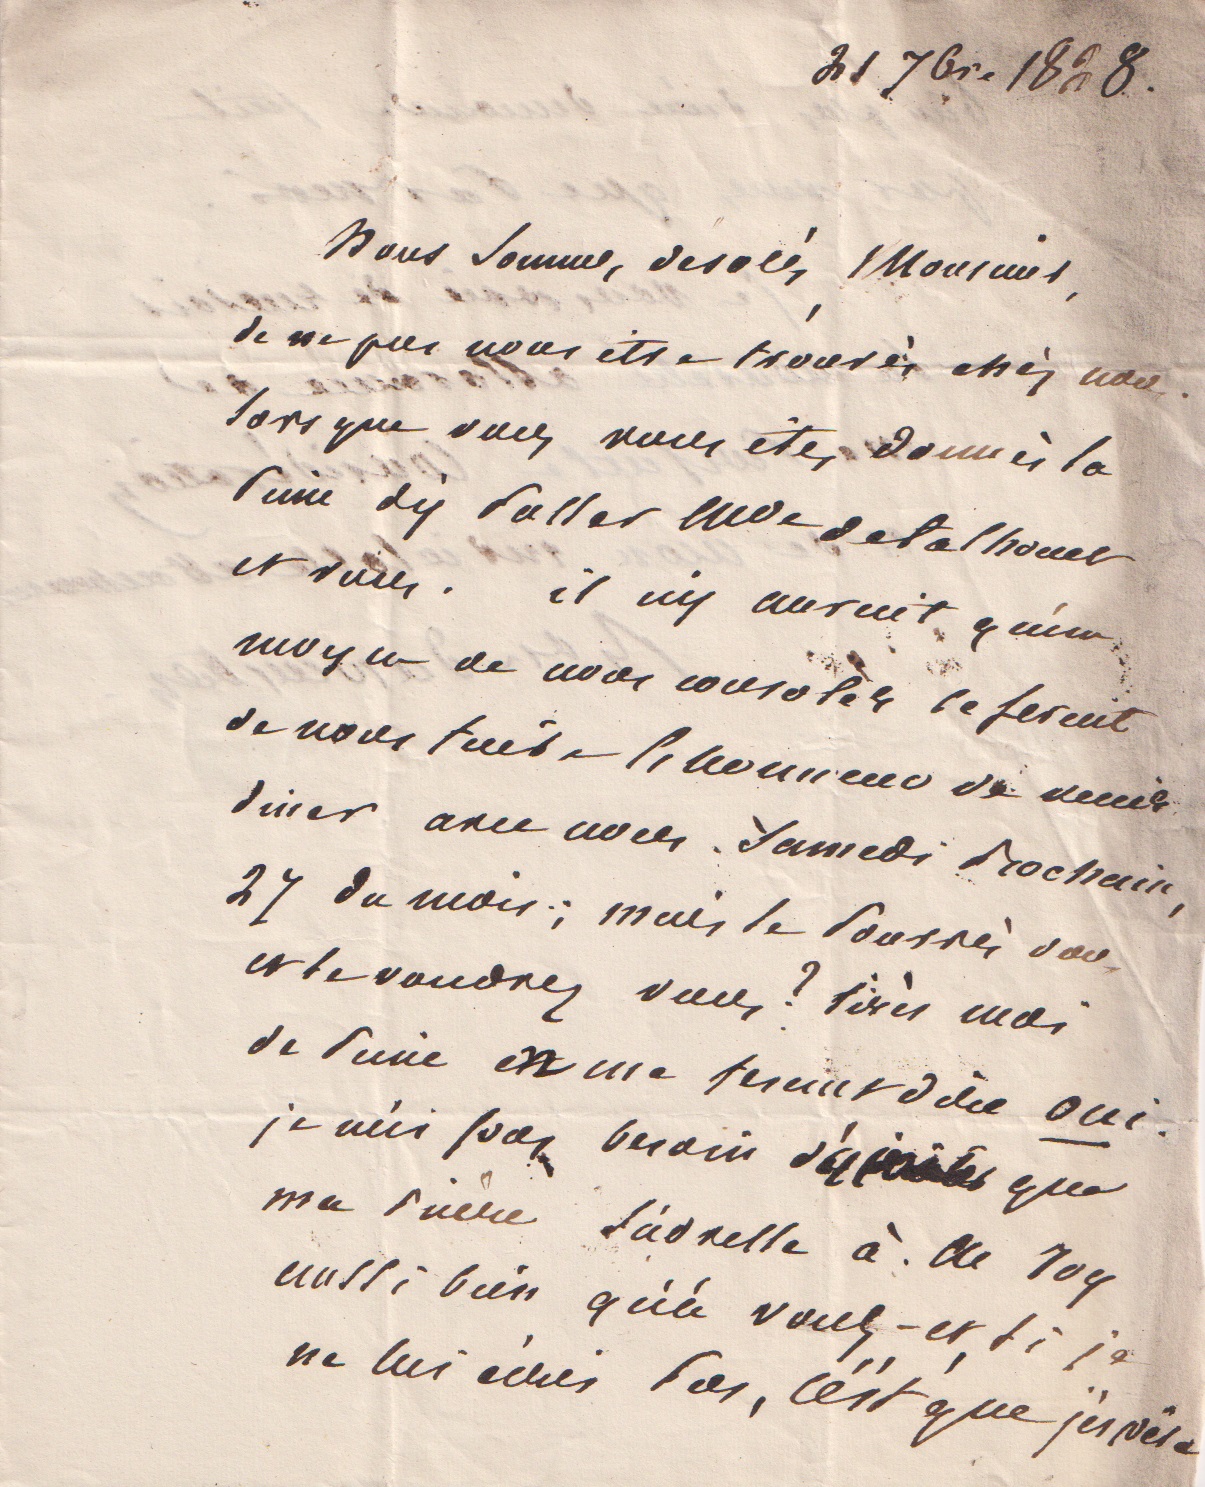 21 7bre 1828.
Nous sommes désolés, Monsieur,
de ne pas nous être trouvés chés nous
lorsque vous vous êtes donnés la
peine d'y passer Mde de talhouet
et vous. il n'y auroit qu'un
moyen de nous consoler ce seroit
de nous faire l'honneur de venir
diner avec nous. Samedi prochain,
27 du mois; mais le pourrés vous
et le voudrez vous? tirés moi
de peine en me faisant dire oui.
je n'ai pas besoin d' que
ma prière s'adresse à M. Roy
aussi bien qu'à vous - et si je
ne lui écris pas, c'est que j'espère